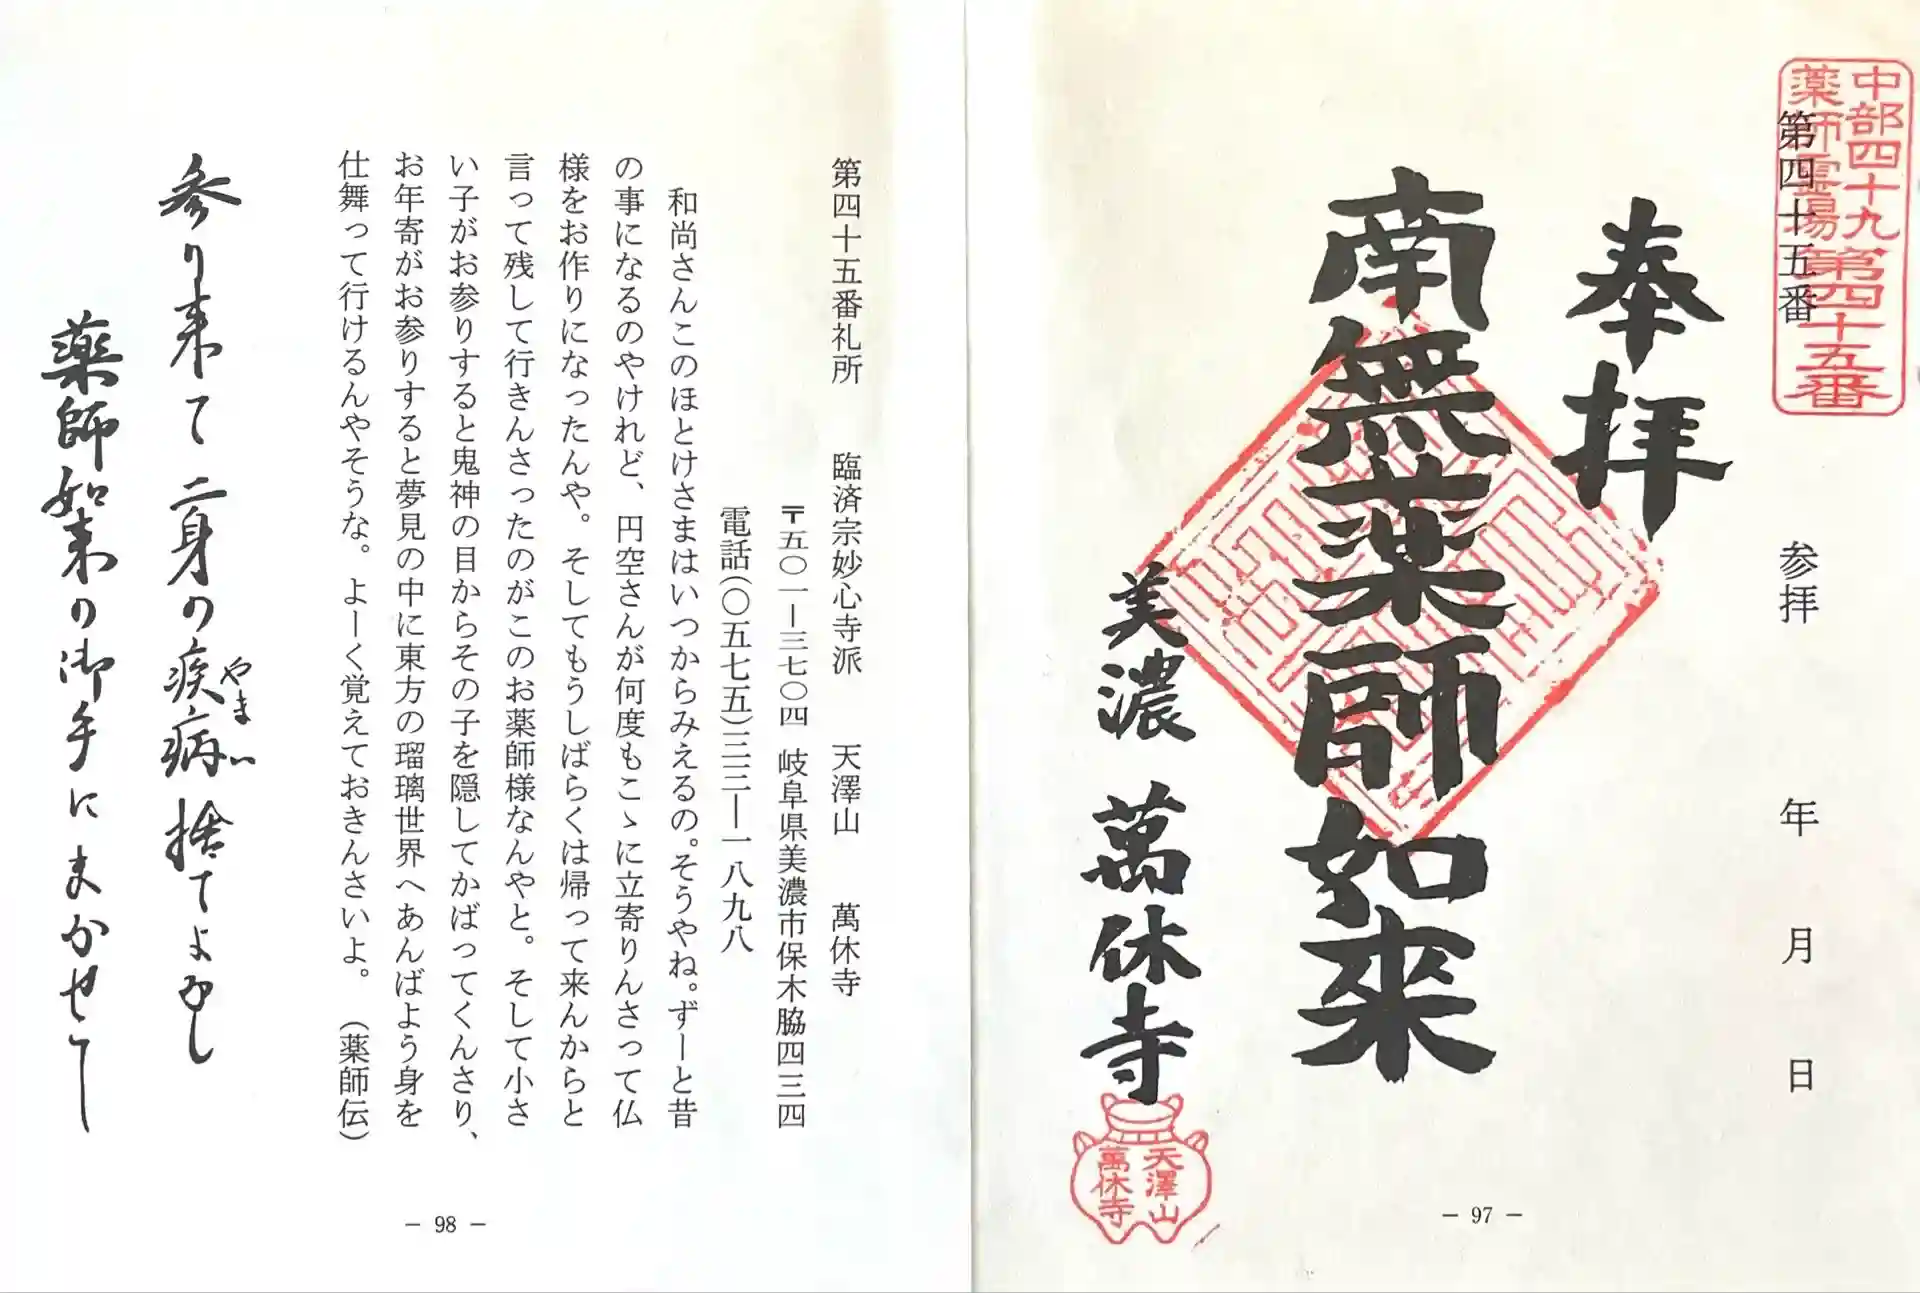 中部四十九
薬師霊場第四十五番
第四十五番
参拝 年 月 日
奉拝
南無薬師如来
美濃 萬休寺
天澤山
萬休寺
― 97 ―
第四十五番礼所 臨済宗妙心寺派 天澤山 萬休寺
〒五〇一―三七〇四 岐阜県美濃市保木脇四三四
電話(〇五七五)三三―一八九八
和尚さんこのほとけさまはいつからみえるの。そうやね。ずーと昔
の事になるのやけれど、円空さんが何度もこゝに立寄りんさって仏
様をお作りになったんや。そしてもうしばらくは帰って来んからと
言って残して行きんさったのがこのお薬師様なんやと。そして小さ
い子がお参りすると鬼神の目からその子を隠してかばってくんさり、
お年寄がお参りすると夢見の中に東方の瑠璃世界へあんばよう身を
仕舞って行けるんやそうな。よーく覚えておきんさいよ。 (薬師伝)
参り来て二身の疾病捨てよかし
やまい
薬師如来の御手にまかせて
― 98 ―